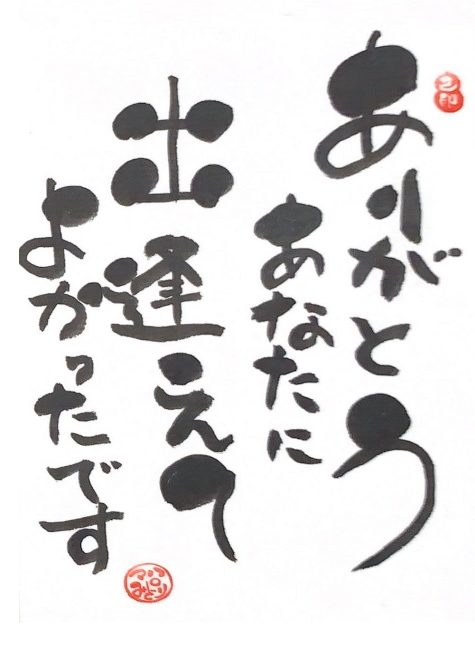 ありがとう
あなたに
出逢えて
よかったです